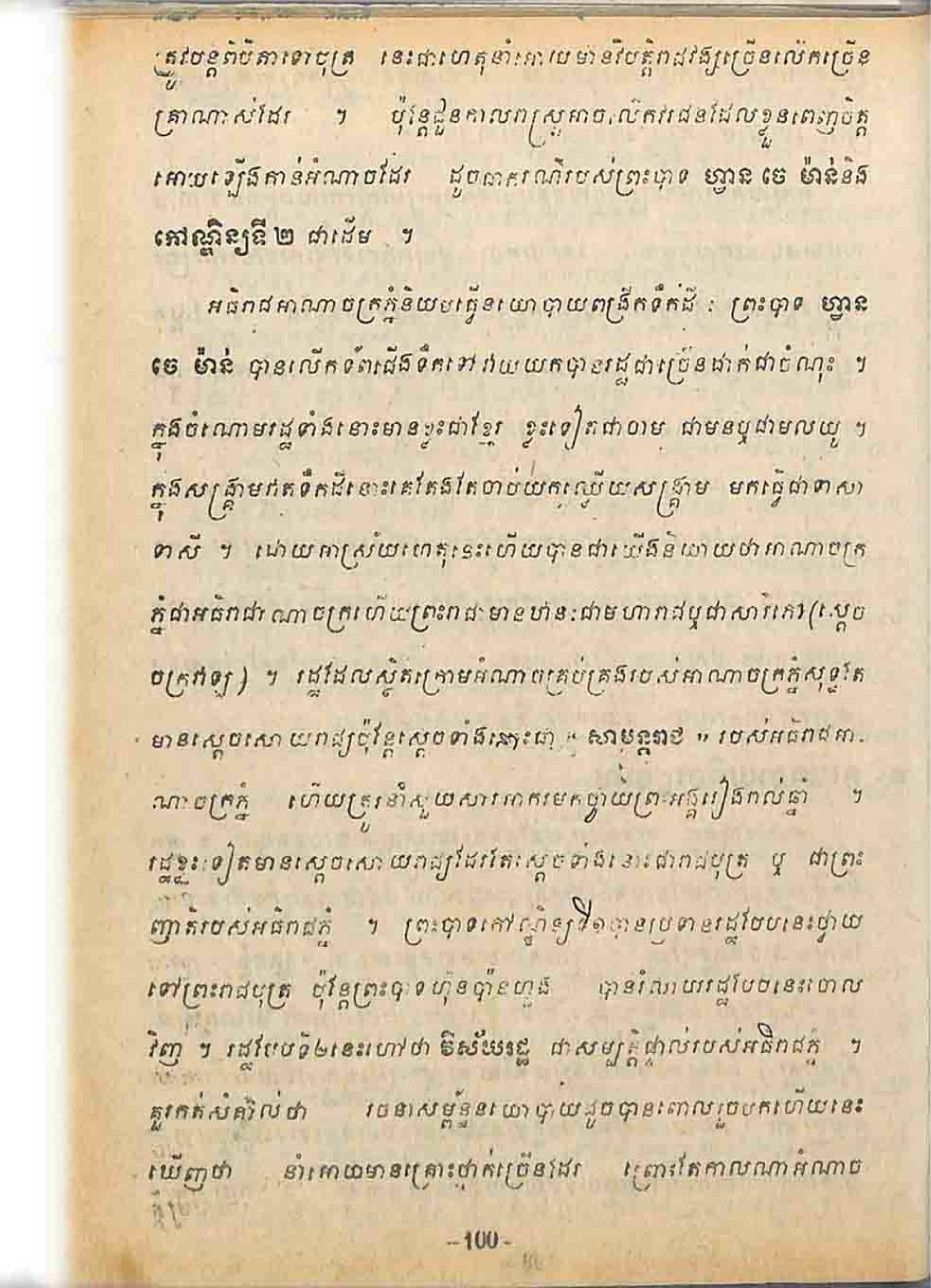 ត្រូវបន្តពីបិតាទៅបុត្រ នេះជាហេតុនាំអោយមានវិបត្តិរាជវង្សច្រើនលើកច្រើន
គ្រាណាស់ដែរ ។ ប៉ុន្តែជួនកាលរាស្រ្តអាចលើកវរជនដែលខ្លួនពេញចិត្ត
អោយឡើងកាន់អំណាចដែរ ដូចជាករណីរបស់ព្រះបាទ ហ្វាន ចេ ម៉ាន់និង
កៅណ្ឌិន្យទី ២ ជាដើម ។
អធិរាជអាណាចក្រភ្នំនិយមធ្វើនយោបាយពង្រីកទឹកដី : ព្រះបាទ ហ្វាន
ចេ ម៉ាន់ បានលើកទ័ពជើងទឹកទៅវាយយកបានរដ្ឋជាច្រើនដាក់ជាចំណុះ ។
ក្នុងចំណោមរដ្ឋទាំងនោះមានខ្លះជាខ្មែរ ខ្លះទៀតជាចាម ជាមនឬជាមលយូ ។
ក្នុងសង្គ្រាមឥតទឹកដីនោះគេតែងតែចាប់យកឈ្លើយសង្គ្រាម មកធ្វើជាទាសា
ទាសី ។ ដោយអាស្រ័យហេតុនេះហើយបានជាយើងនិយាយថាអាណាចក្រ
ភ្នំជាអធិរាជាណាចក្រហើយព្រះរាជាមានឋានះជាមហារាជឬជាសាវ៌ភៅ(ស្តេច
ចក្រវាឡ) ។ រដ្ឋដែលស្ថិតក្រោមអំណាចគ្រប់គ្រងរបស់អាណាចក្រភ្នំសុទ្ធតែ
មានស្តេចសោយរាជ្យប៉ុន្តែស្តេចទាំងនោះជា « សាមន្តរាជ » របស់អធិរាជអា-
ណាចក្រភ្នំ ហើយត្រូវនាំសួយសារអាករមកថ្វាយព្រះអង្គរៀងរាល់ឆ្នាំ ។
រដ្ឋខ្លះទៀតមានស្តេចសោយរាជ្យដែរតែស្តេចទាំងនោះជារាជបុត្រ ឬ ជាព្រះ
ញាតិរបស់អធិរាជភ្នំ ។ ព្រះបាទកៅណ្ឌិន្យទី១បានប្រទានរដ្ឋបែបនេះថ្វាយ
ទៅព្រះរាជបុត្រ ប៉ុន្តែព្រះបាទហ៊ុនប៉ានហួង បានរំលាយរដ្ឋបែបនេះចោល
វិញ ។ រដ្ឋបែបទី២នេះហៅថា វិស័យរដ្ឋ ជាសម្បត្តិផ្ទាល់របស់អធិរាជភ្នំ ។
គួរកត់សំគាល់ថា រចនាសម្ព័ន្ធនយោបាយដូចបានពោលរួចមកហើយនេះ
ឃើញថា នាំអោយមានគ្រោះថ្នាក់ច្រើនដែរ ព្រោះតែកាលណាអំណាច
-100-